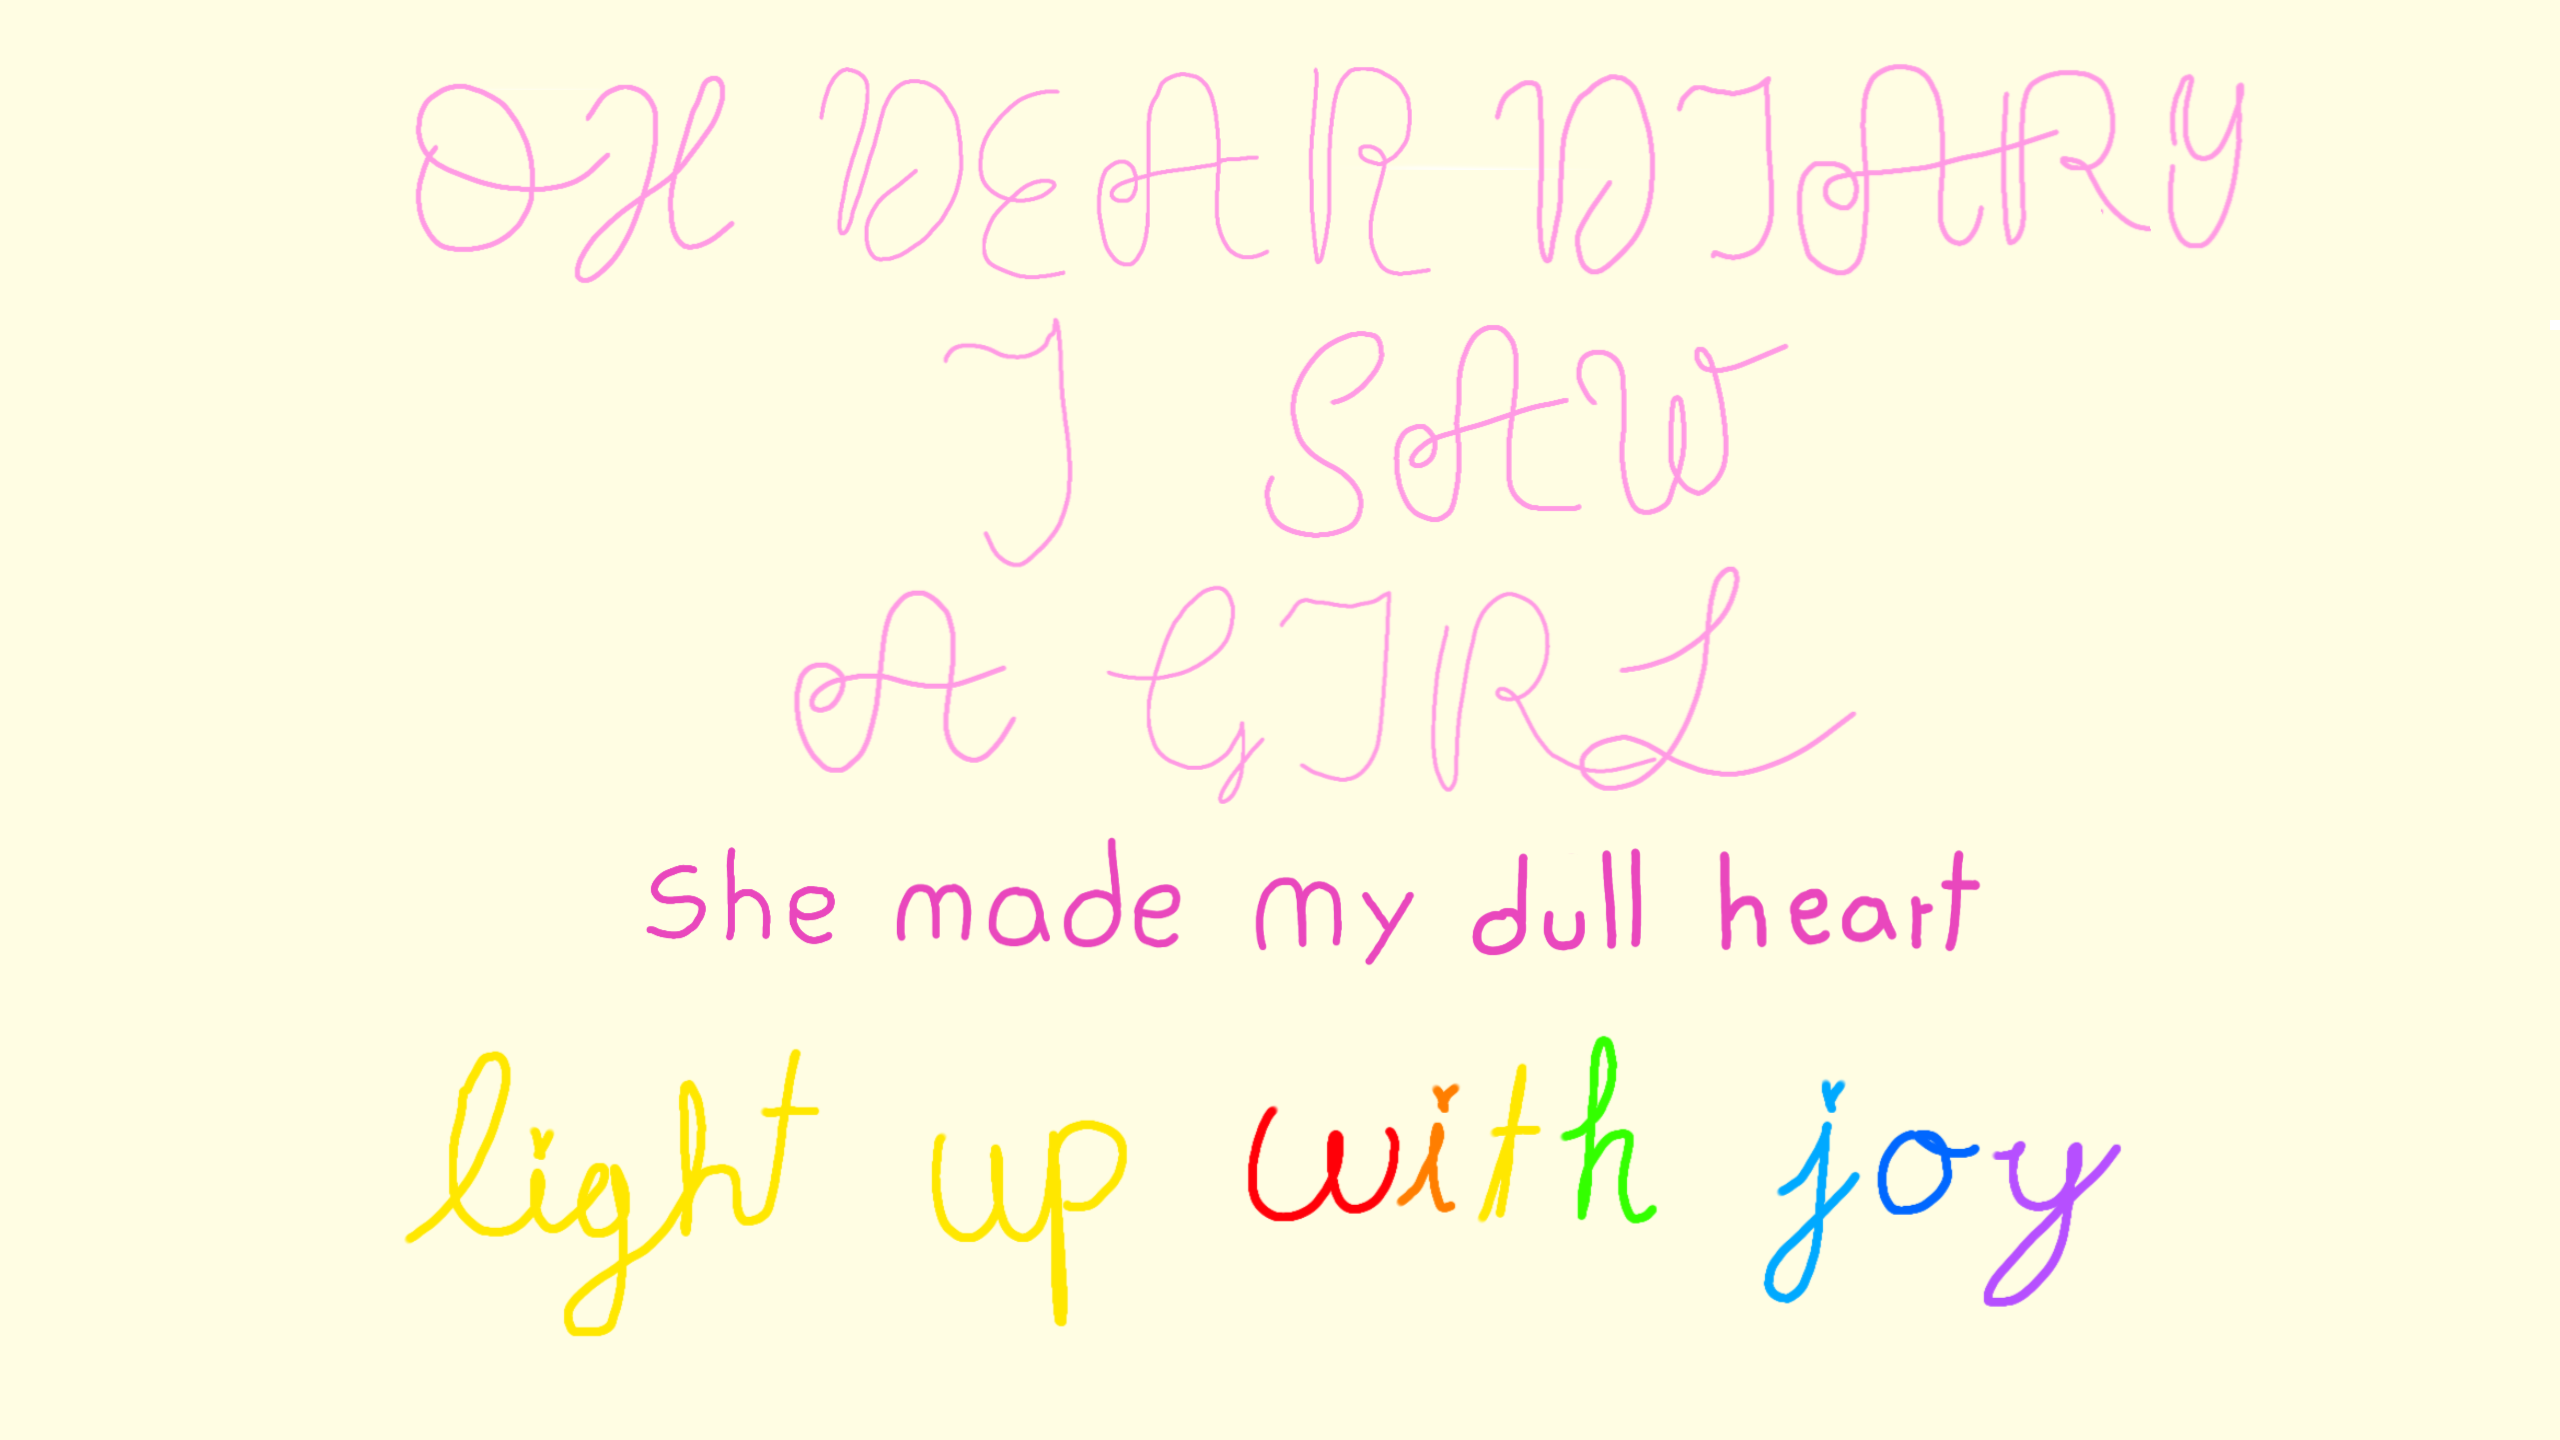 OH DEAR DIARY
I SAW
A GIRL
She made my dull heart
light up with joy